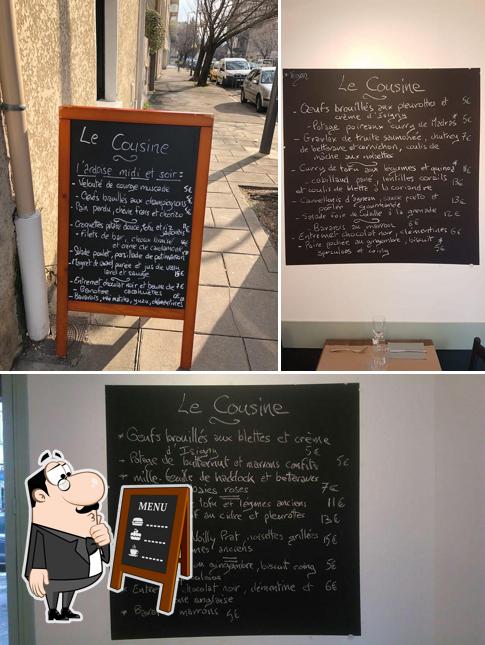 Le Cousine
L'ardoise midi et soir :
- Velouté de courge muscade 5€
- Oeufs brouillés aux champignons
- Pain perdu, chèvre frais et chorizo
- Croquettes patate douce, tofu et riz
- Filets de bar,
et crème de
- Salade poulet, persillade de
- Magret de canard purée et jus de
lard et sauge
- Entremet chocolat noir et beurre de 7€
- Banofine cacahuètes
- Bavarois, yuzu, clémentines
Vegan
Le Cousine
- Oeufs brouillés aux pleurotes et 5€
crème d'Isigny
- Potage poireaux curry de Madras 5€
- Gravlax de truite saumonée, chutney 7€
de betterave et cornichon, coulis de
mâche aux noisettes
- Curry de tofu aux légumes et quinoa 11€
- Cabillaud pané, lentilles corails
et coulis de blette à la coriandre 13€
- Cannellonis d'agneau, sauce porto et
poêlée gourmande 13€
- Salade foie de volaille à la grenade 12€
- Bavarois au marron 6€
- Entremet chocolat noir, clémentines 6€
- Poire pochée au gingembre, biscuit
spéculoos et coing 5€
Le Cousine
* Oeufs brouillés aux blettes et crème
d'Isigny 5€
* Potage de butternut et marrons confits 5€
* mille-feuille de haddock et betteraves
baies roses 7€
tofu et légumes anciens 11€
au cidre et pleurotes 13€
Noilly Prat, noisettes grillées
anciens 15€
gingembre, biscuit coing 5€
* Entre chocolat noir, clémentine et 6€
anglaise
* Bava marrons 5€
MENU